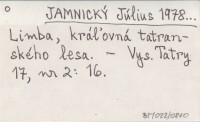 JAMNICKÝ Július 1978...
Limba, kráľovná tatran-
ského lesa. - Vys. Tatry
17, nr 2: 16.